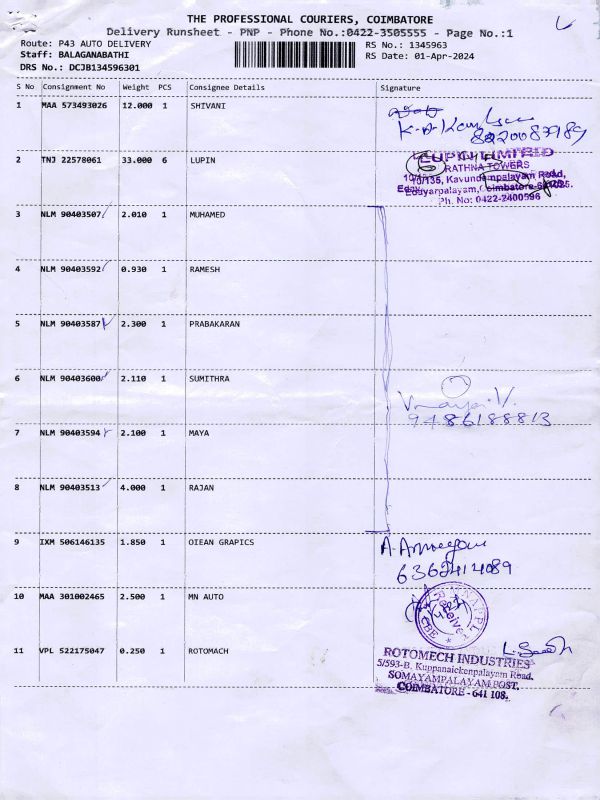 THE PROFESSIONAL COURIERS, COIMBATORE
Delivery Runsheet - PNP - Phone No.:0422-3505555 - Page No.:1
Route: P43 AUTO DELIVERY RS No.: 1345963
Staff: BALAGANABATHI RS Date: 01-Apr-2024
DRS No.: DCJB134596301
S No Consignment No Weight PCS Consignee Details Signature
1 MAA 573493026 12.000 1 SHIVANI
8220087989
2 TNJ 22578061 33.000 6 LUPIN
LUPIN LIMITED
RATHNA TOWERS
Kavundampalayam Road,
Edayarpalayam, Coimbatore-641025.
Ph. No: 0422-2400596
3 NLM 90403507 2.010 1 MUHAMED
4 NLM 90403592 0.930 1 RAMESH
5 NLM 90403587 2.300 1 PRABAKARAN
6 NLM 90403600 2.110 1 SUMITHRA
9486188813
7 NLM 90403594 2.100 1 MAYA
8 NLM 90403513 4.000 1 RAJAN
9 IXM 506146135 1.850 1 OIEAN GRAPICS
6362414089
10 MAA 301002465 2.500 1 MN AUTO
Received
CBE
11 VPL 522175047 0.250 1 ROTOMACH
ROTOMECH INDUSTRIES
5/593-B, Kuppanaickenpalayam Road,
SOMAYAMPALAYAM POST,
COIMBATORE - 641 108.